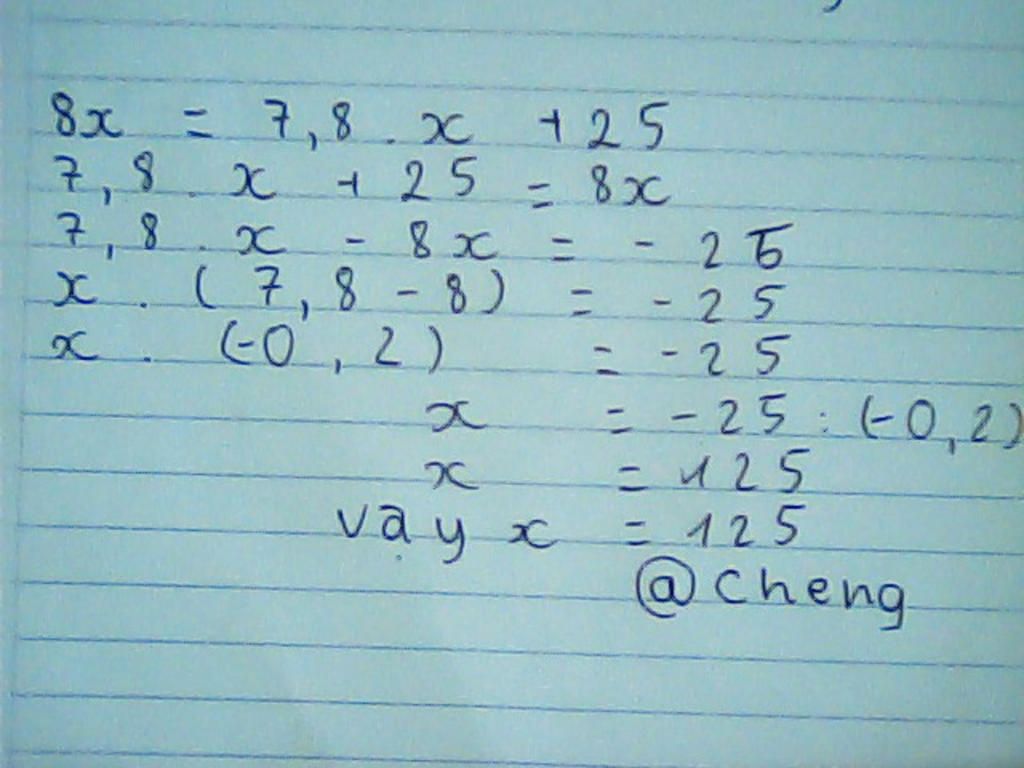 8x = 7,8 . x + 25
7,8 . x + 25 = 8x
7,8 . x - 8x = - 25
x . ( 7,8 - 8 ) = - 25
x . (-0,2) = - 25
x = - 25 : (-0,2)
x = 125
vậy x = 125
@Cheng